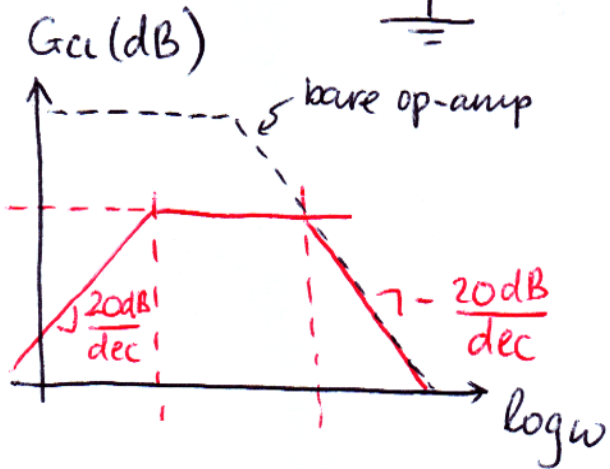 Gcl (dB)
bare op-amp
20dB
dec
- 20dB
dec
log ω